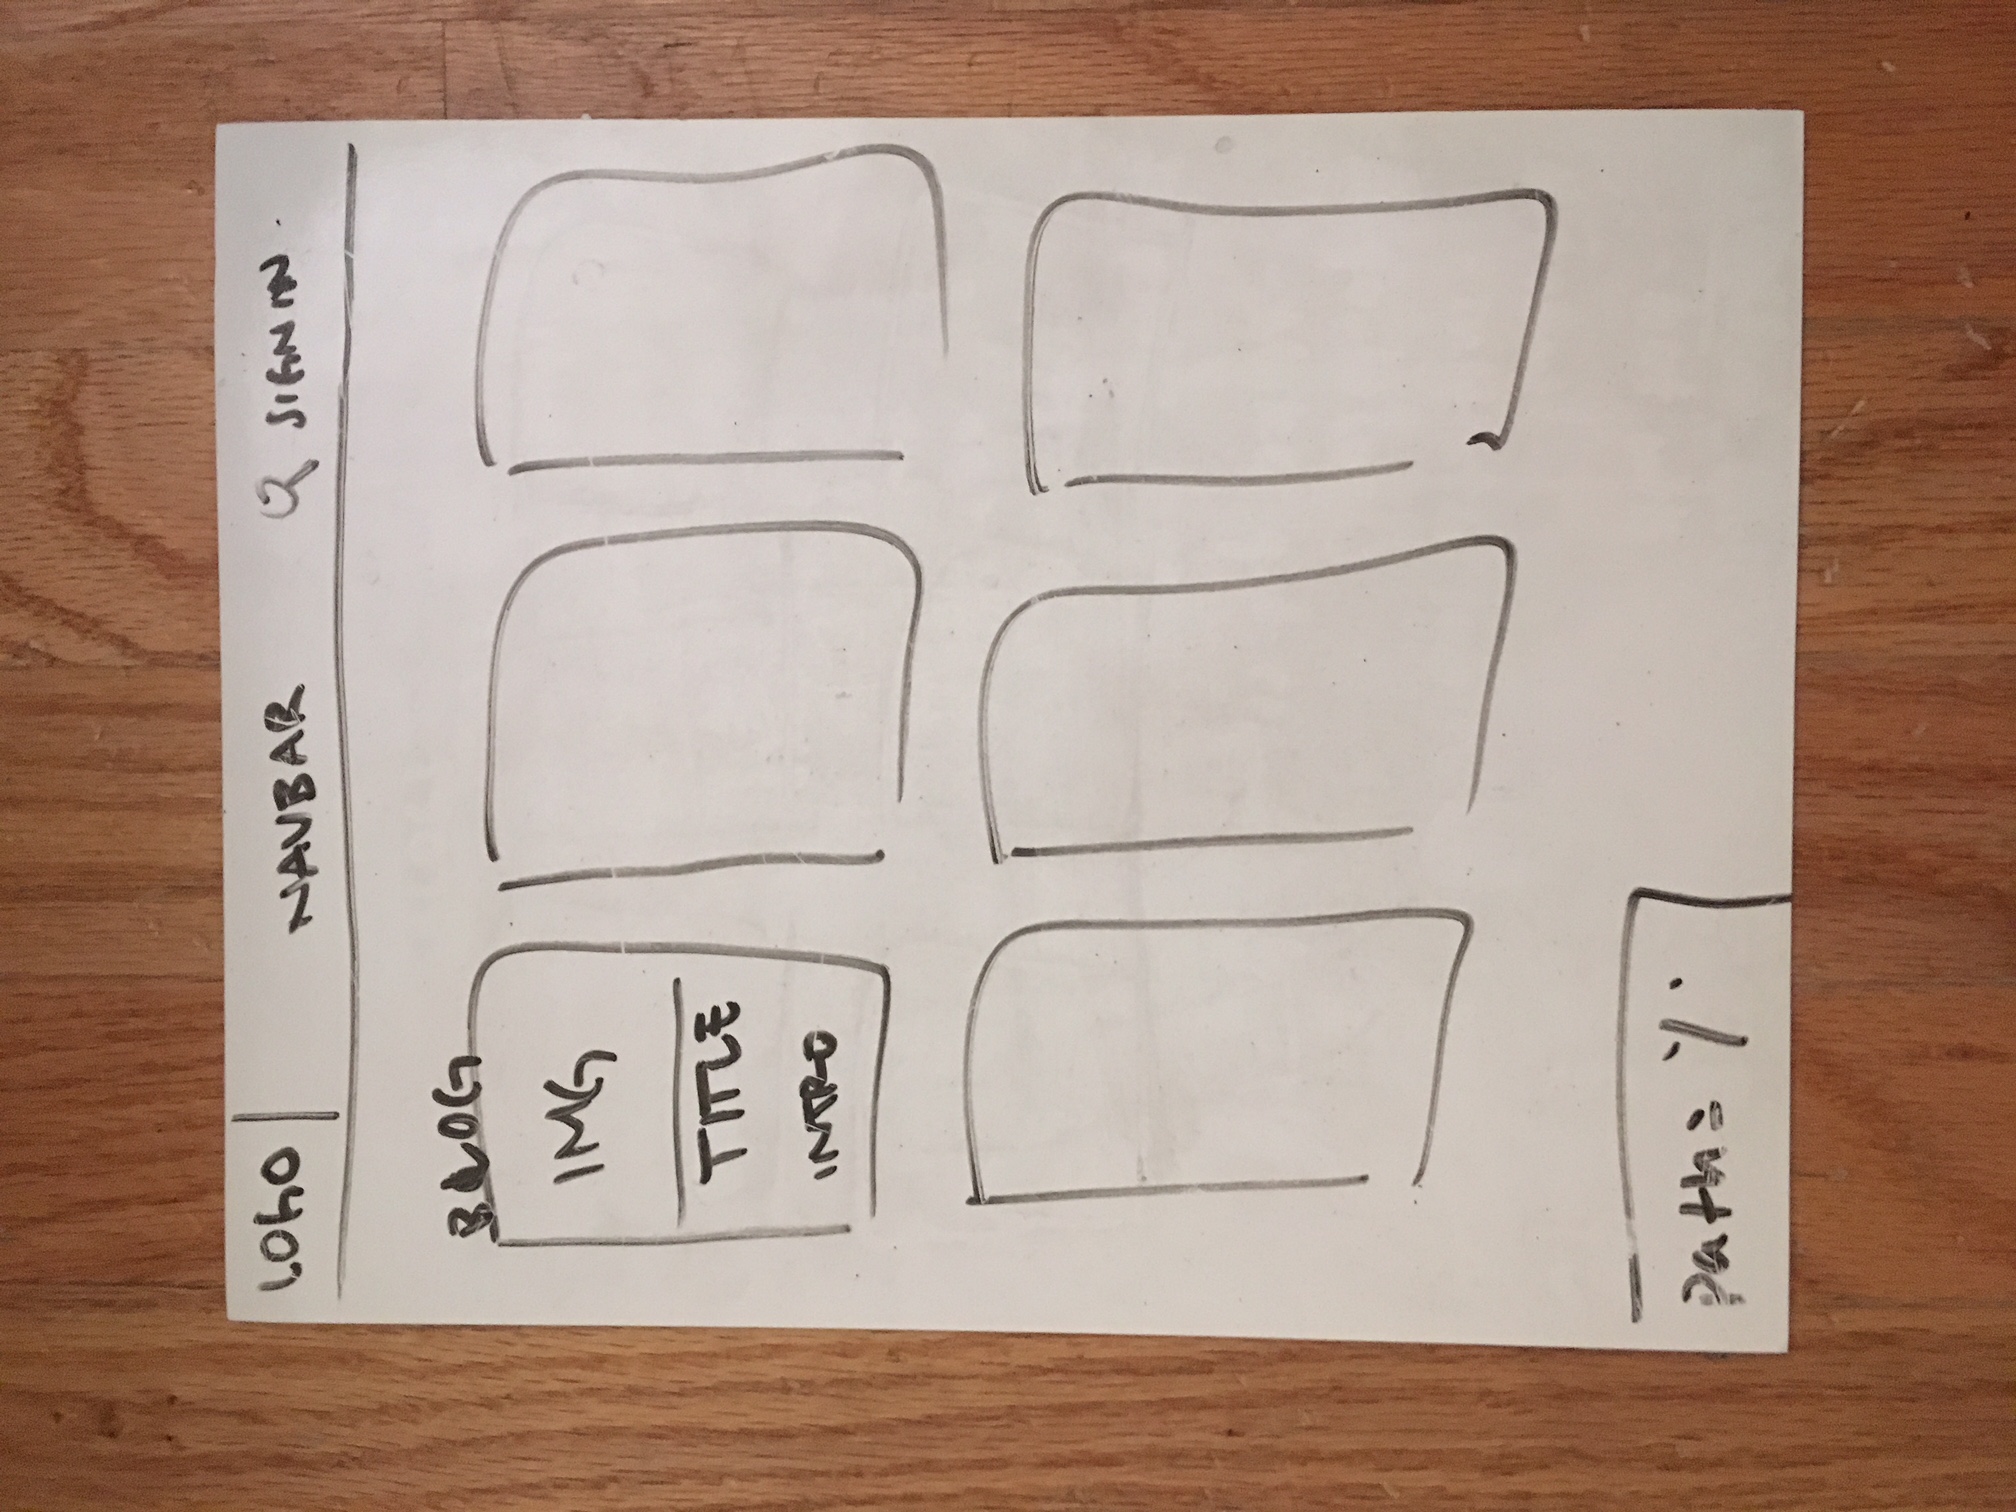 LOGO NAVBAR SIGN IN
BLOG
IMG
TITLE
INTRO
path= '/'